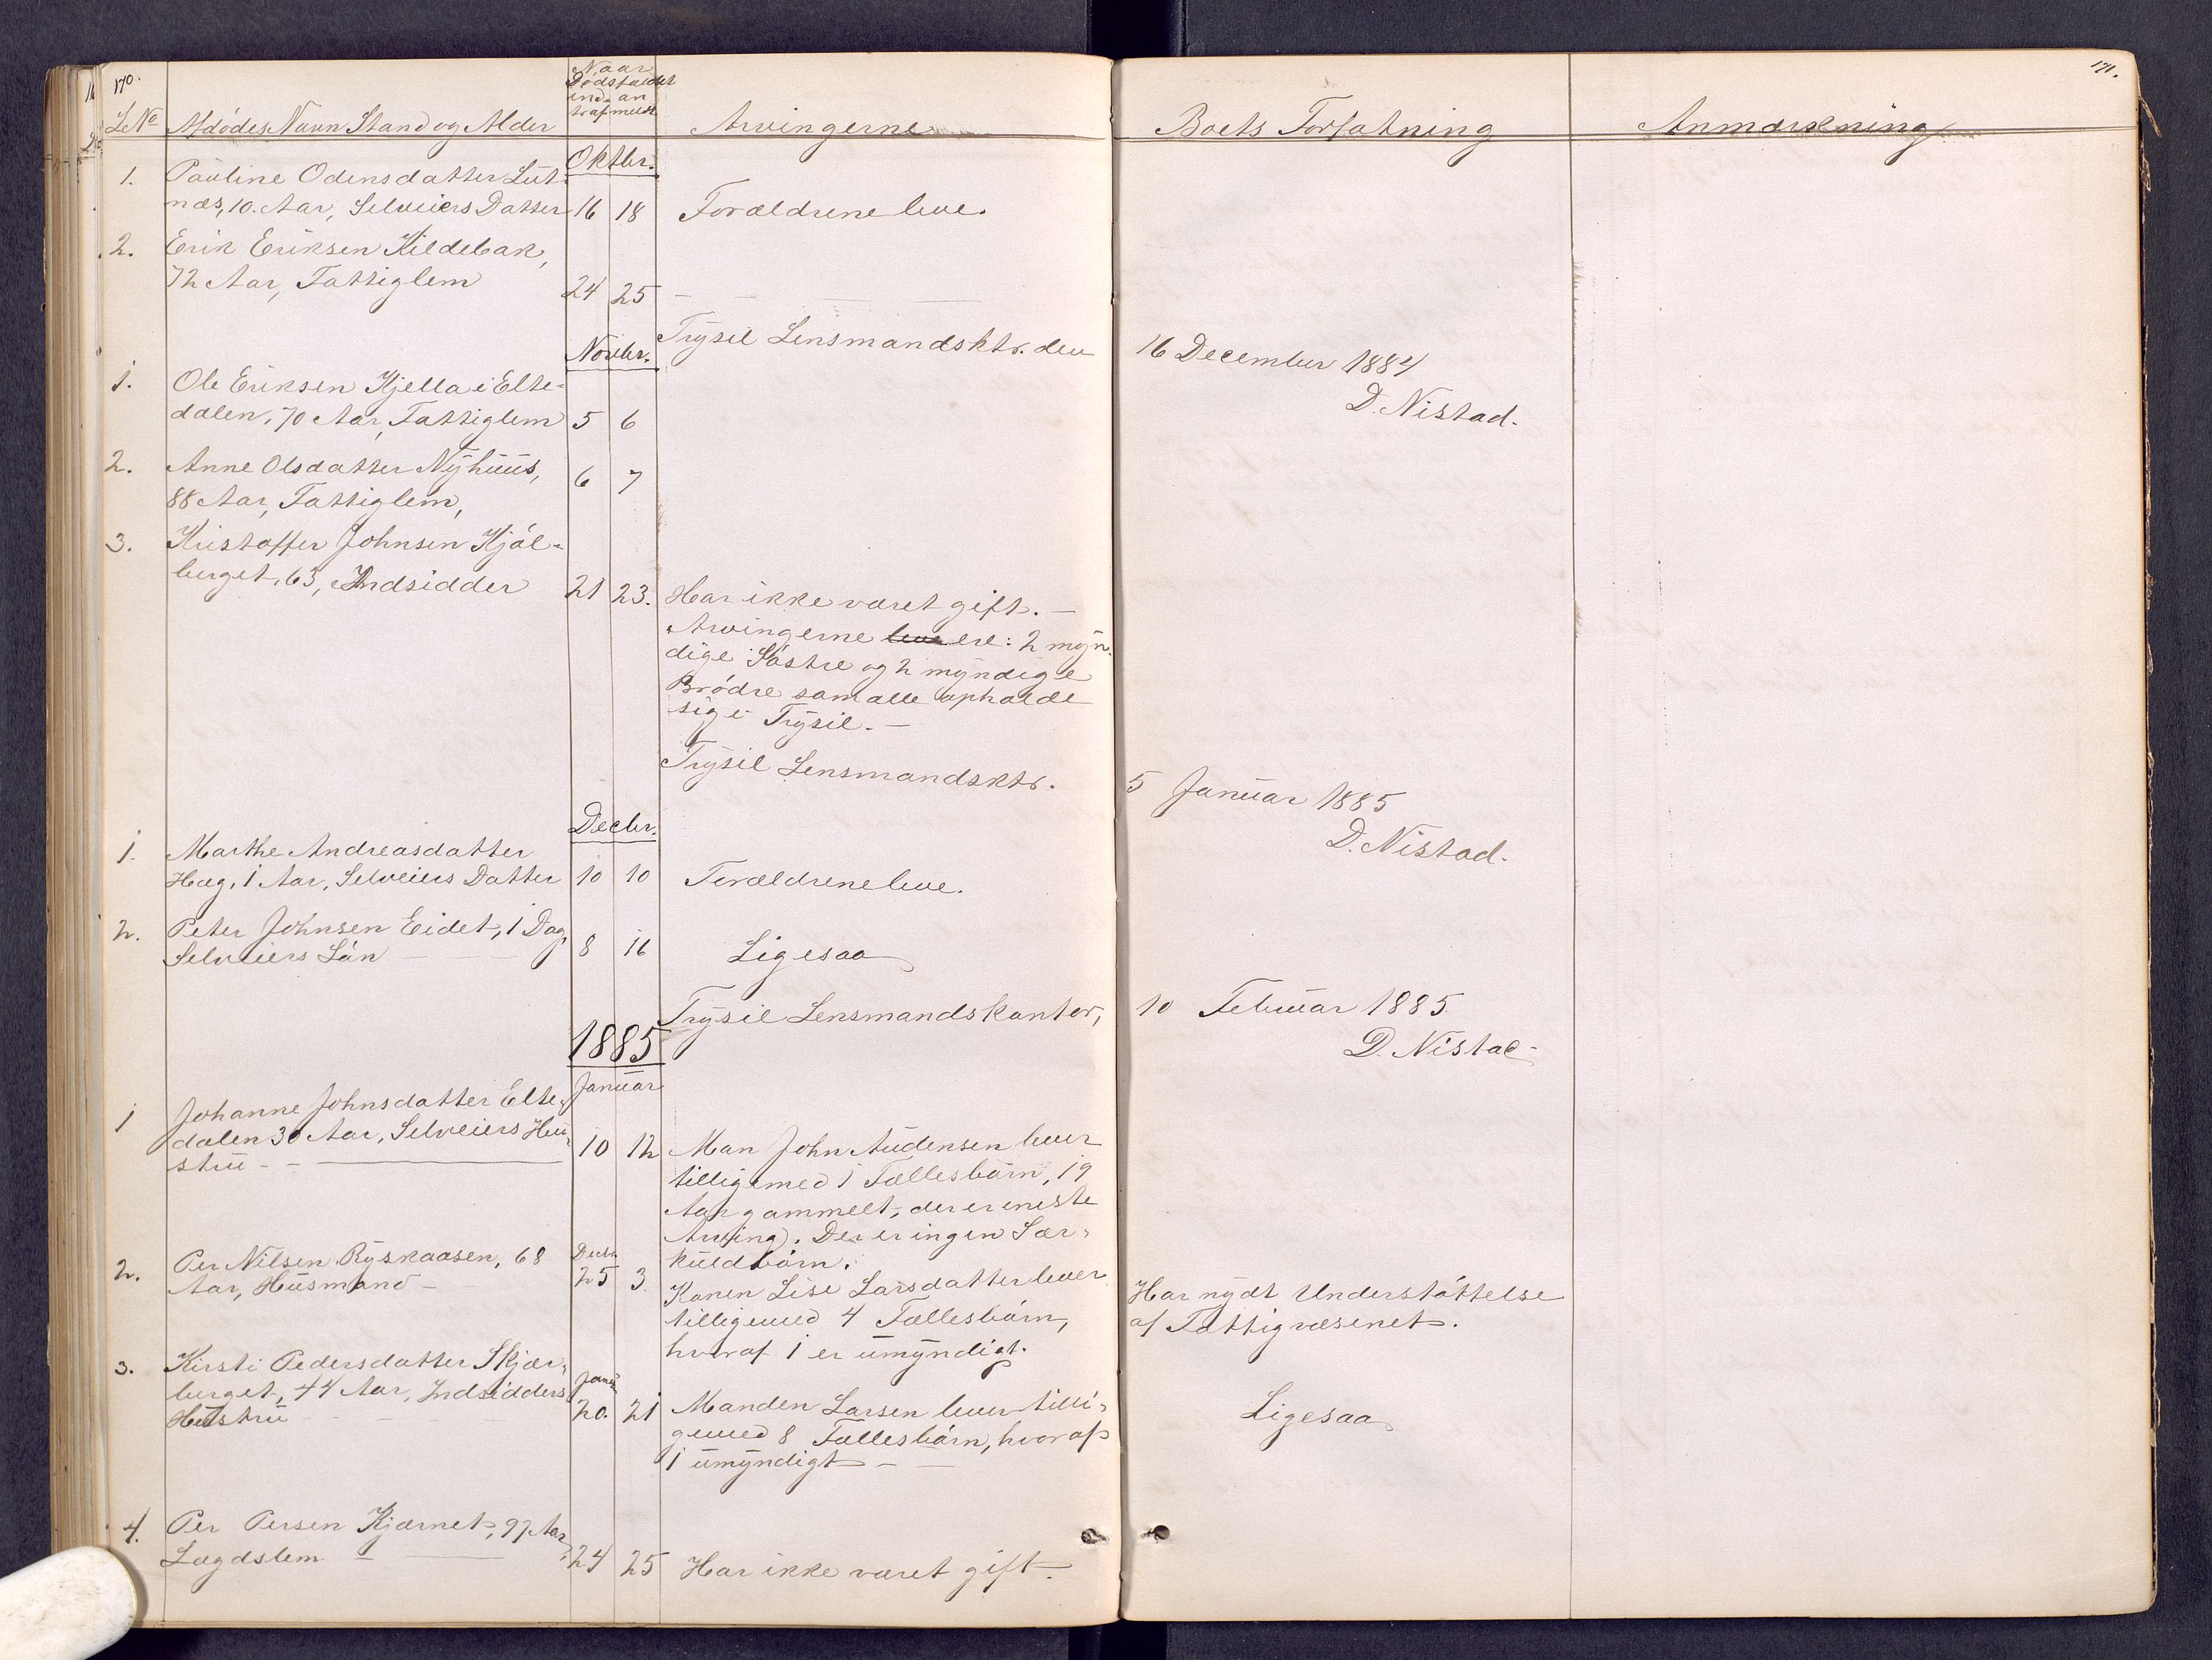 170.
Naar
Dødsfaldet
ind- an
traf meldt
LNo Afdødes Navn Stand og Alder Arvingerne
Oktbr.
1. Pauline Odensdatter Lut-
næs, 10. Aar, Selveiers Datter 16 18 Forældrene leve.
2. Erik Eriksen Kildebak,
72 Aar, Fattiglem 24 25 — — — —
Novbr. Trysil Lensmandsktr. den
1. Ole Eriksen Kjella i Elte-
dalen, 70 Aar, Fattiglem 5 6
2. Anne Olsdatter Nyhuus,
88 Aar, Fattiglem, 6 7
3. Kristoffer Johnsen Kjøl-
berget, 63, Indsidder 21 23. Har ikke været gift. —
Arvingerne leve ere: 2 myn-
dige Søstre og 2 myndige
Brødre som alle opholde
sig i Trysil. —
Trysil Lensmandsktr.
Decbr.
1. Marthe Andreasdatter
Hæg, 1 Aar, Selveiers Datter 10 10 Forældrene leve.
2. Peter Johnsen Eidet, 1 Dag,
Selveiers Søn — — — 8 16 Ligesaa
Trysil Lensmandskontor,
1885
Januar
1 Johanne Johnsdatter Elte-
dalen 30 Aar, Selveiers Hu-
stru - - — 10 12 Man John Audensen lever
tilligemed 1 Fællesbarn, 19
Aar gammelt, der er eneste
Arving. Der er ingen Sær-
kuldbørn.
2. Per Nilsen Ryskaasen, 68
Aar, Husmand — Decbr. 25 3. Konen Lise Larsdatter lever
tilligemed 4 Fællesbørn,
hvoraf 1 er umyndigt.
3. Kirsti Pedersdatter Skjær-
berget, 44 Aar, Indsidders
Hustru — — Januar 20. 21 Manden Larsen lever tilli-
gemed 8 Fællesbørn, hvoraf
1 umyndigt — —
4. Per Persen Kjærnet, 97 Aar,
Lægdslem — — 24 25 Har ikke været gift.
171.
Boets Forfatning Anmærkning
16 December 1884
D. Nistad.
5 Januar 1885
D. Nistad.
10 Februar 1885
D. Nistad
Har nydt Understøttelse
af Fattigvæsenet.
Ligesaa